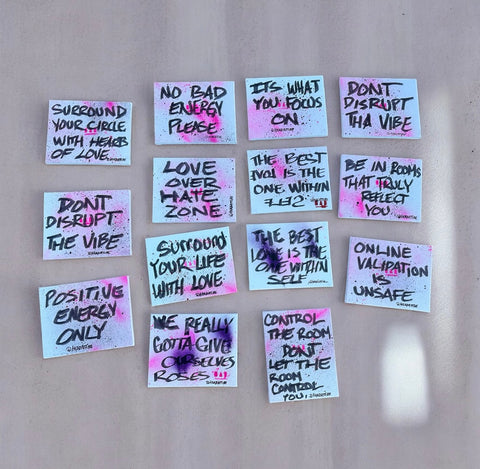 SURROUND
YOUR CIRCLE
WITH HEARTS
OF LOVE.
DONT
DISRUPT
THE VIBE
POSITIVE
ENERGY
ONLY
NO BAD
ENERGY
PLEASE.
LOVE
OVER
HATE
ZONE.
SURROUND
YOUR LIFE
WITH LOVE.
WE REALLY
GOTTA GIVE
OURSELVES
ROSES.
ITS WHAT
YOU FOCUS
ON.
THE BEST
IS THE
ONE WITHIN
THE BEST
LOVE IS THE
ONE WITHIN
SELF
CONTROL
THE ROOM
DONT
LET THE
ROOM
CONTROL
YOU.
DONT
DISRUPT
THA VIBE
BE IN ROOMS
THAT TRULY
REFLECT
YOU.
ONLINE
VALIDATION
IS
UNSAFE